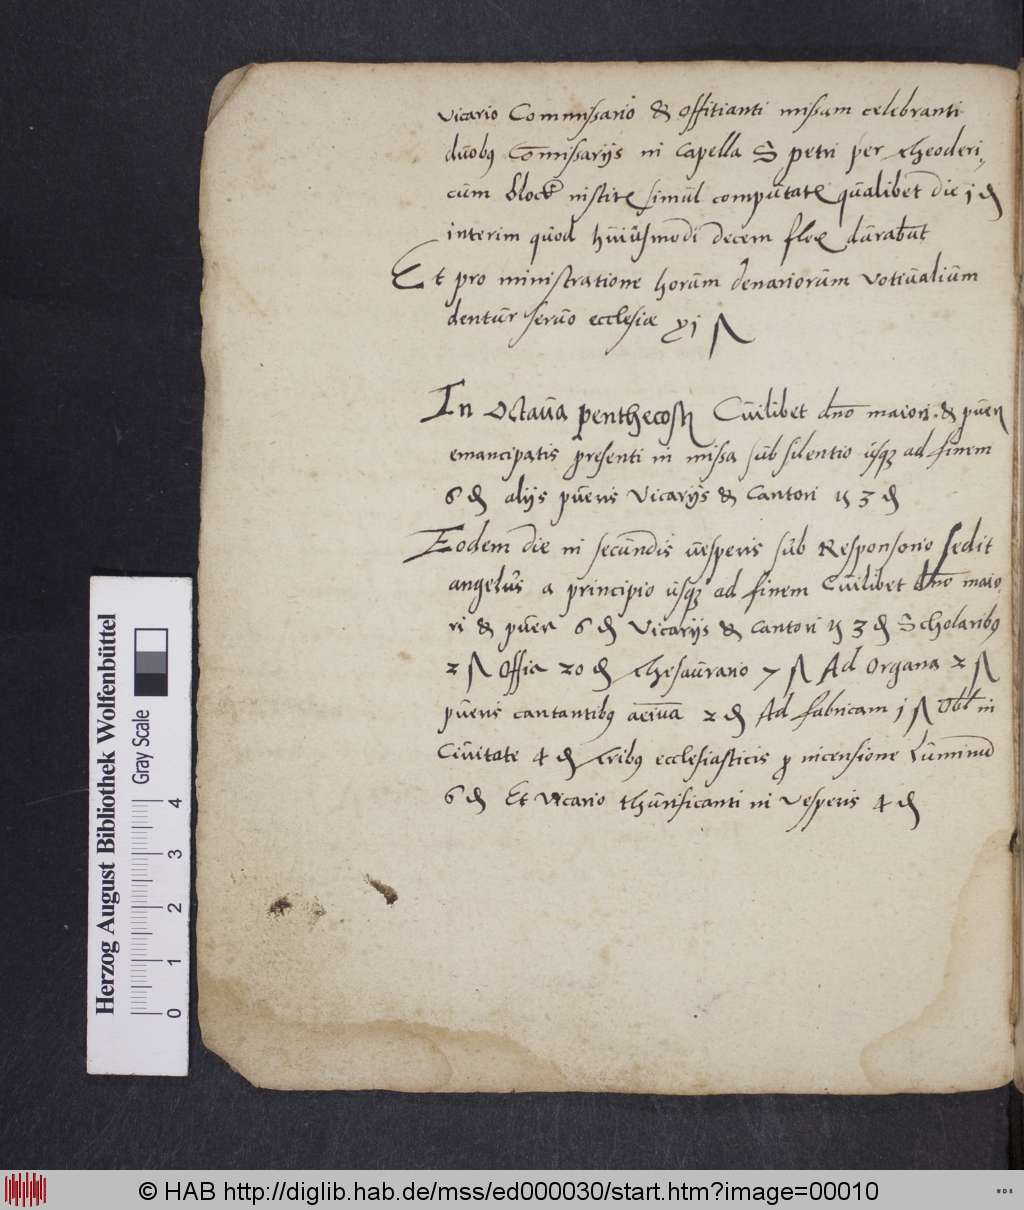 vicario Commissario & offitianti missam celebranti
duobus Commissarijs in capella S petri per theoderi,
cum block simul computat qualibet die j ₰
interim quod huiusmodi decem flor durabunt
Et pro ministratione horum denariorum votiualium
dentur seruo ecclesiæ xj ß
In Octaua penthecost Cuilibet dno maiori. & puer
emancipatis presenti in missa sub silentio usque ad finem
6 ₰ alijs pueris Vicarijs & Cantori 3 ₰
Eodem die in secundis uesperis sub Responsorio sedit
angelus a principio usque ad finem Cuilibet dno maio
ri & puer 6 ₰ Vicarijs & Cantori 3 ₰ Scholaribus
2 ß Offia 20 ₰ thesaurario 7 ß Ad Organa 2 ß
pueris cantantibus 2 ₰ Ad fabricam j ß Obl in
Ciuitate 4 ₰ ecclesiasticis p incensione luminum
6 ₰ Et vicario thurificanti in vesperis 4 ₰
Herzog August Bibliothek Wolfenbüttel
Gray Scale
0 1 2 3 4
© HAB http://diglib.hab.de/mss/ed000030/start.htm?image=00010